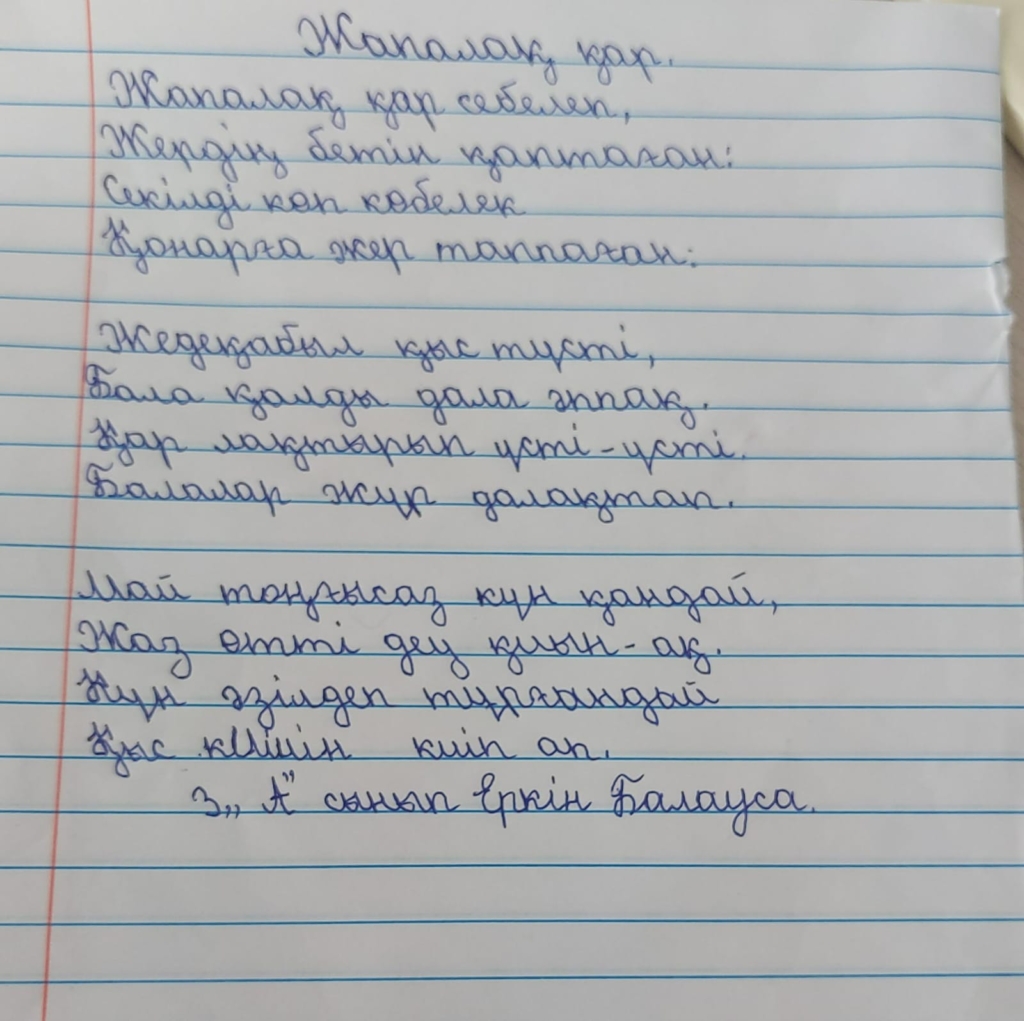 Жапалақ қар.
Жапалақ қар себелеп,
Жердің бетін қаптаған:
Секілді көп көбелек
Қонарға жер таппаған:
Жедеқабыл қыс түсті,
Бала қалды дала әппақ.
Қар лақтырып үсті-үсті.
Балалар жүр далақтап.
Май тоңғысаз күн қандай,
Жаз өтті деу қиын-ақ.
Күн әзілдеп тұрғандай
Қыс киімін киіп ап.
3 „А" сынып Еркін Балауса.